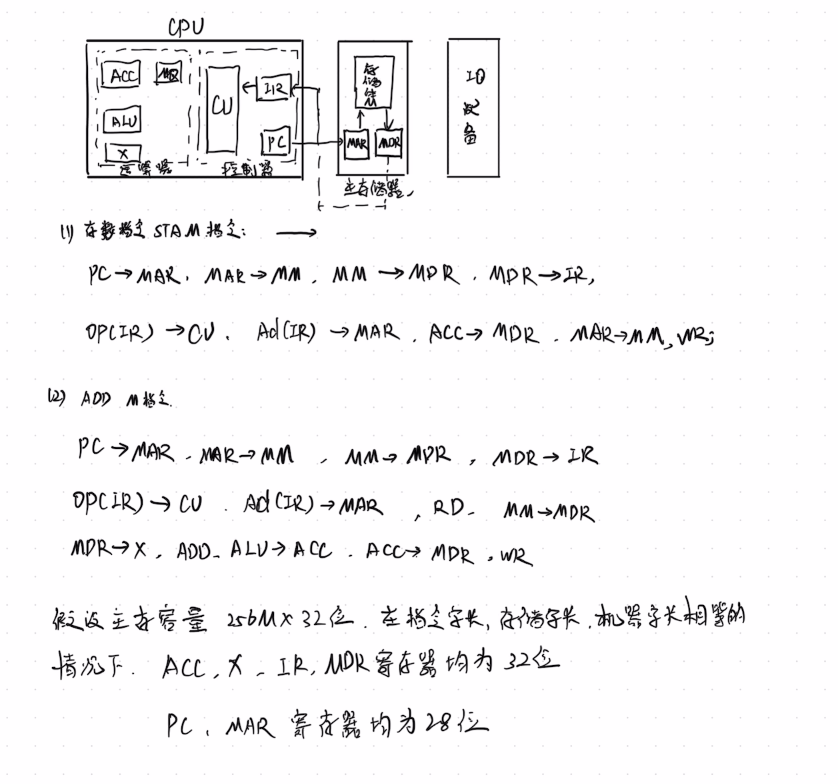 CPU
ACC MQ
ALU
X
运算器
CU
IR
PC
控制器
存储体
MAR MDR
主存储器
IO设备
(1) 存数指令 STA M 指令: →
PC→MAR. MAR→MM. MM→MDR. MDR→IR,
OP(IR)→CU. Ad(IR)→MAR. ACC→MDR. MAR→MM, WR;
(2) ADD M指令.
PC→MAR. MAR→MM, MM→MDR, MDR→IR
OP(IR)→CU. Ad(IR)→MAR, RD. MM→MDR
MDR→X. ADD. ALU→ACC. ACC→MDR, WR
假设主存容量 256M×32位. 在指令字长, 存储字长, 机器字长相等的
情况下. ACC, X, IR, MDR寄存器均为 32位
PC、MAR 寄存器均为28位